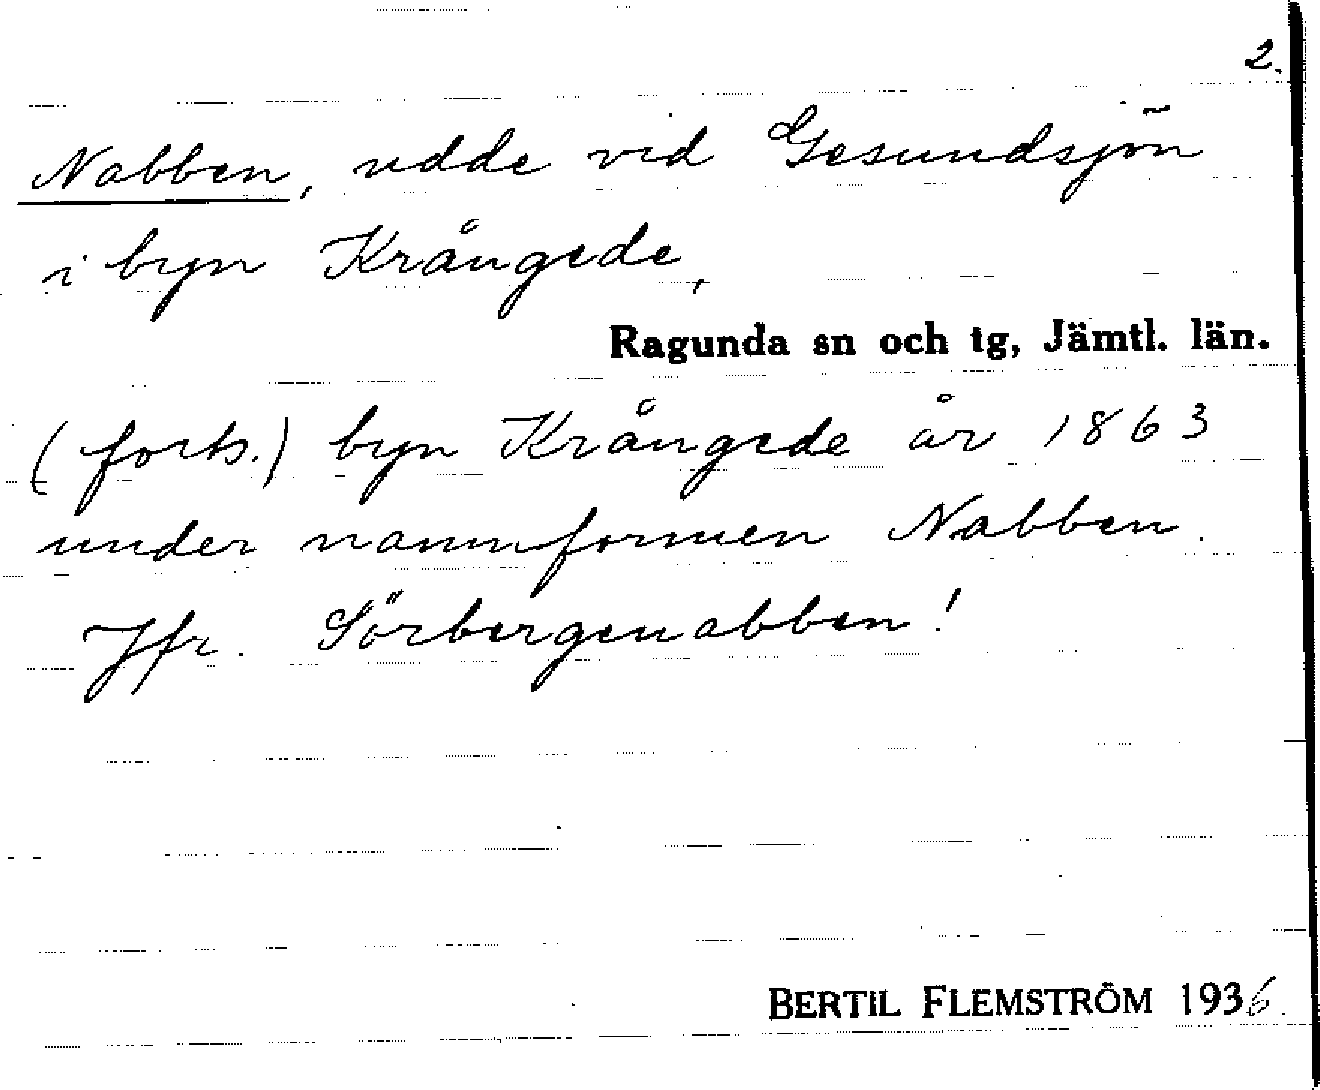 2.
Nabben, udde vid Gesundsjön
i byn Krångede,
Ragunda sn och tg, Jämtl. län.
(forts.) byn Krångede år 1863
under namnformen Nabben.
Jfr. Sörbergenabben!
BERTIL FLEMSTRÖM 1936.